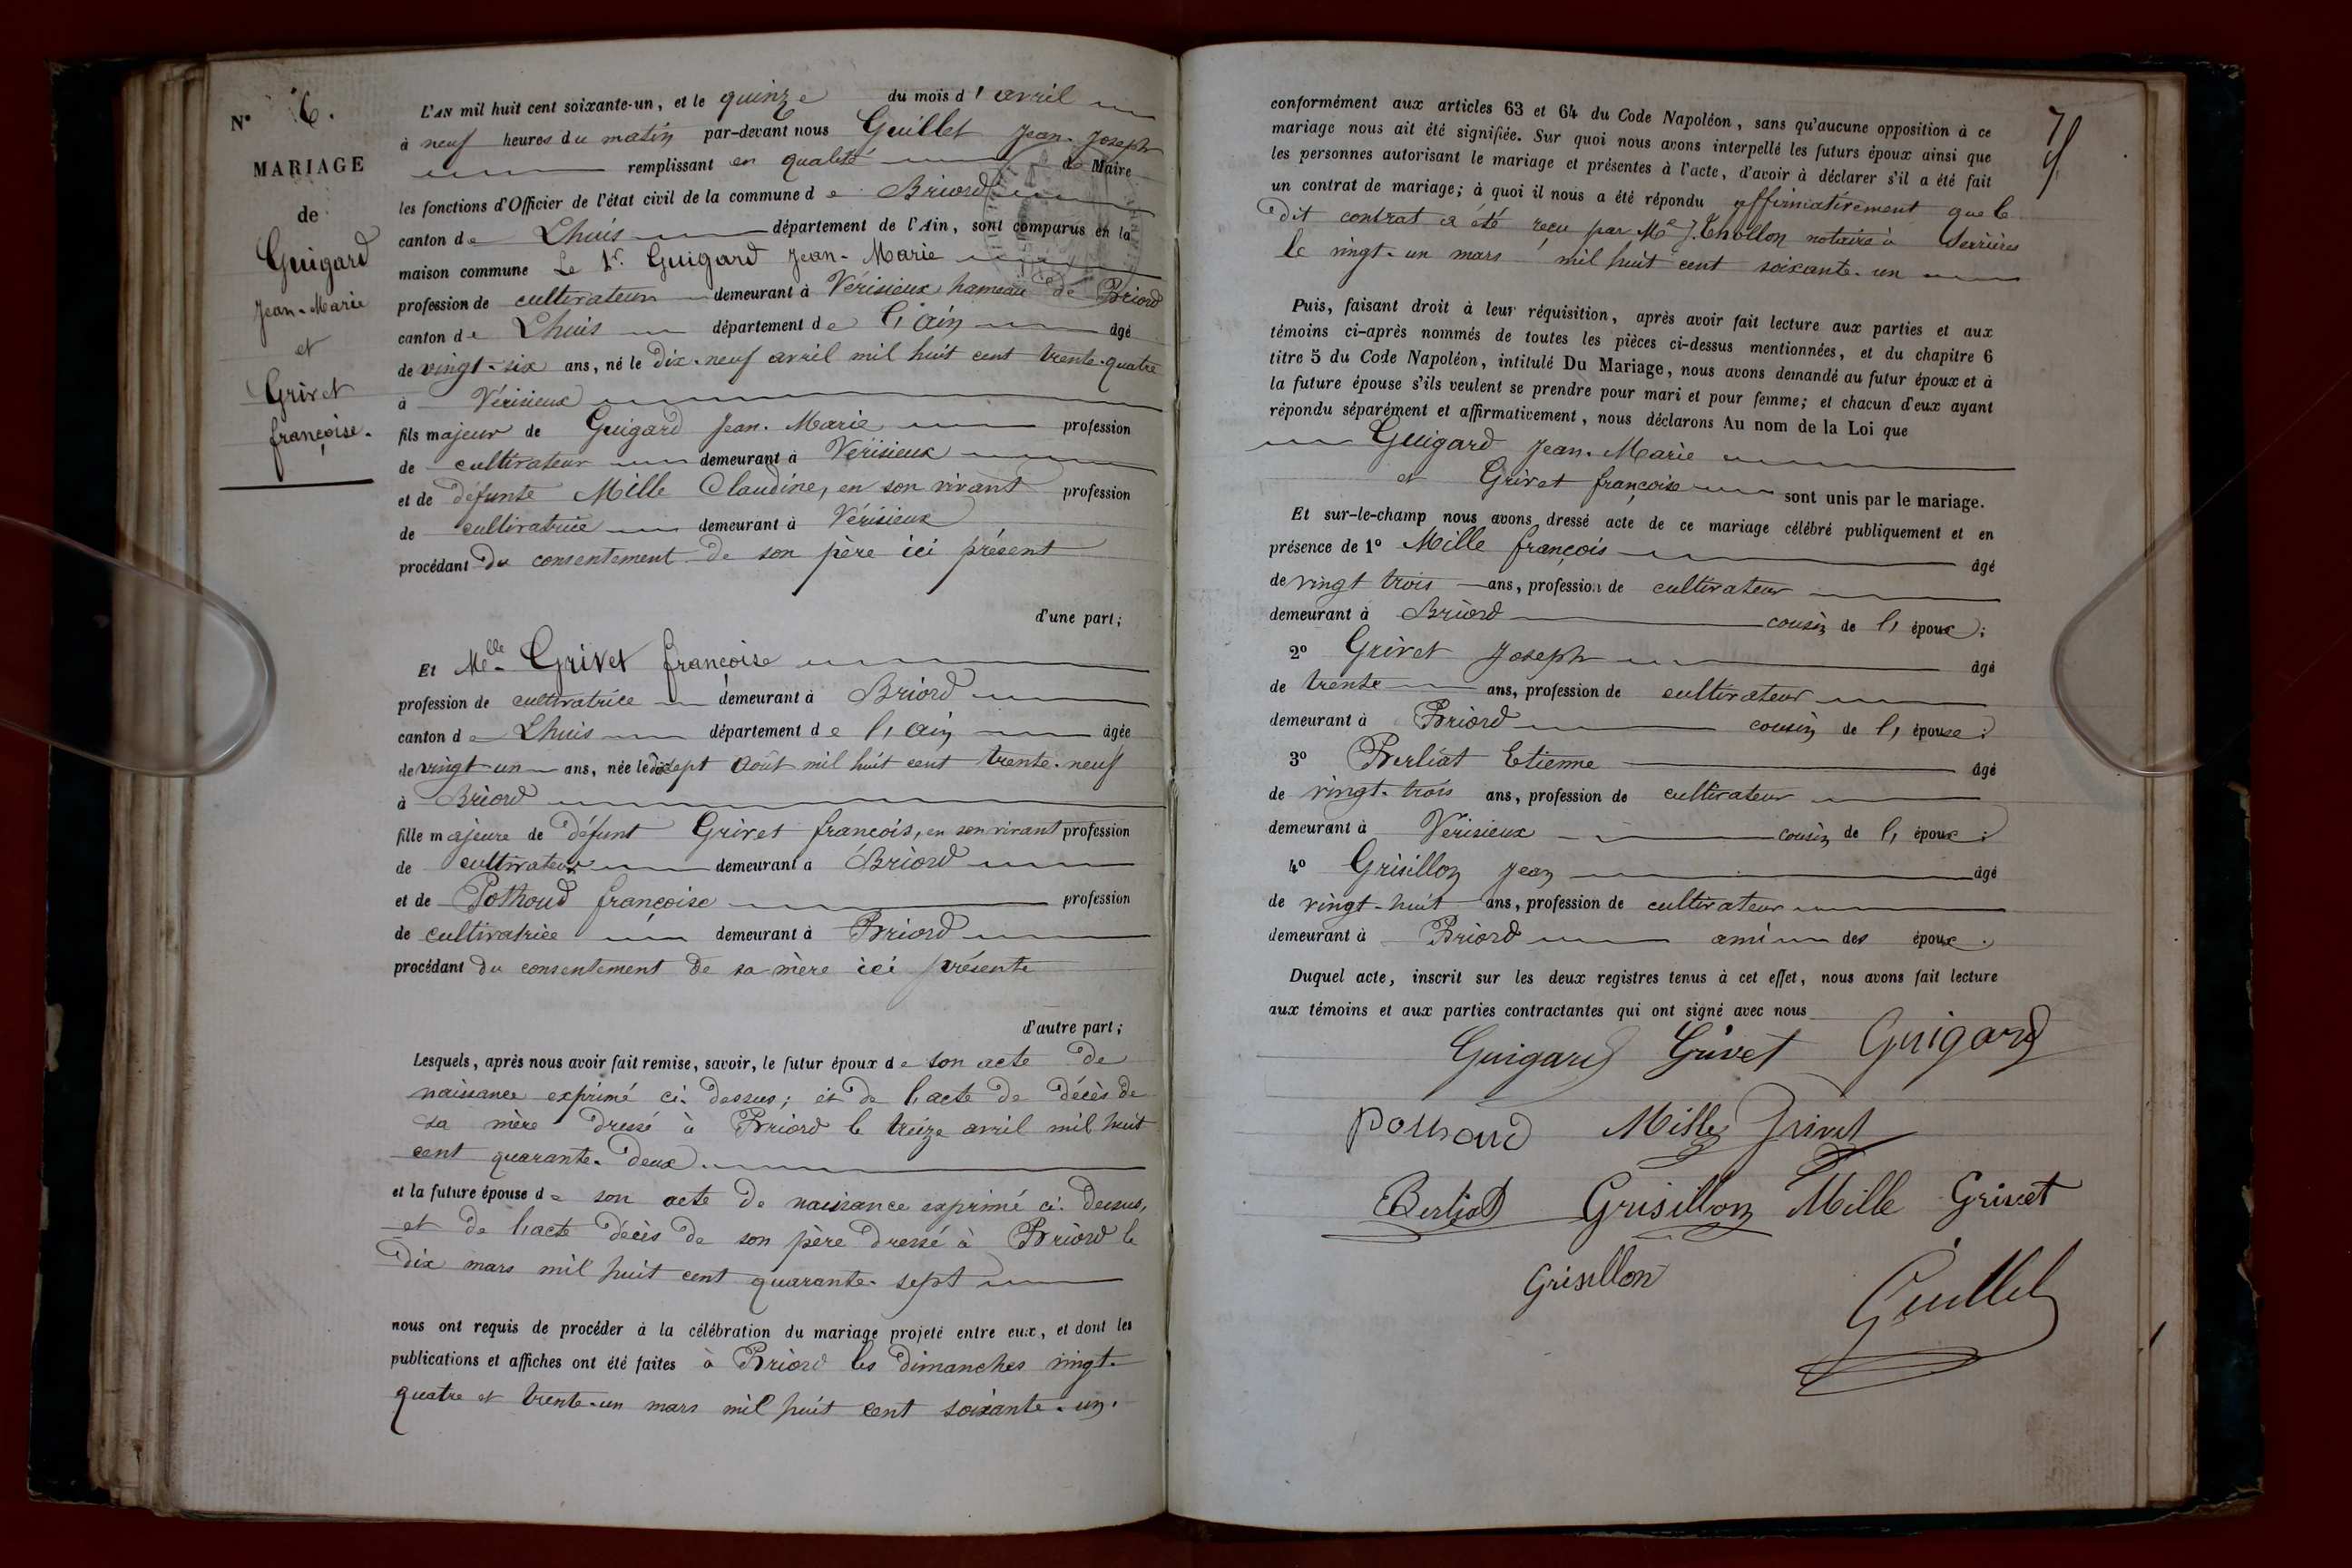 N° 6.
MARIAGE
de
Guigard
Jean-Marie
et
Grivet
françoise.
L'AN mil huit cent soixante-un, et le quinze du mois d'avril
à neuf heures du matin par-devant nous Guillet Jean-Joseph
remplissant en qualité de Maire
les fonctions d'Officier de l'état civil de la commune de Briord
canton de Lhuis département de l'Ain, sont comparus en la
maison commune Le Sr. Guigard Jean-Marie
profession de cultivateur demeurant à Vérisieux hameau de Briord
canton de Lhuis département de l'ain âgé
de vingt-six ans, né le dix-neuf avril mil huit cent trente-quatre
à Vérisieux
fils majeur de Guigard Jean-Marie profession
de cultivateur demeurant à Vérisieux
et de défunte Mille Claudine, en son vivant profession
de cultivatrice demeurant à Vérisieux
procédant du consentement de son père ici présent
d'une part;
Et Melle Grivet françoise
profession de cultivatrice demeurant à Briord
canton de Lhuis département de l'ain âgée
de vingt-un ans, née le dix sept août mil huit cent trente-neuf
à Briord
fille majeure de défunt Grivet françois, en son vivant profession
de cultivateur demeurant à Briord
et de Pothoud françoise profession
de cultivatrice demeurant à Briord
procédant du consentement de sa mère ici présente
d'autre part;
Lesquels, après nous avoir fait remise, savoir, le futur époux de son acte de
naissance exprimé ci-dessus; et de l'acte de décès de
sa mère dressé à Briord le treize avril mil huit
cent quarante-deux
et la future épouse de son acte de naissance exprimé ci-dessus,
et de l'acte décès de son père dressé à Briord le
dix mars mil huit cent quarante-sept
nous ont requis de procéder à la célébration du mariage projeté entre eux, et dont les
publications et affiches ont été faites à Briord les dimanches vingt-
quatre et trente-un mars mil huit cent soixante-un.
conformément aux articles 63 et 64 du Code Napoléon, sans qu'aucune opposition à ce
mariage nous ait été signifiée. Sur quoi nous avons interpellé les futurs époux ainsi que
les personnes autorisant le mariage et présentes à l'acte, d'avoir à déclarer s'il a été fait
un contrat de mariage; à quoi il nous a été répondu affirmativement que le
dit contrat a été reçu par Me J. Thollon notaire à Serrières
le vingt-un mars mil huit cent soixante-un
Puis, faisant droit à leur réquisition, après avoir fait lecture aux parties et aux
témoins ci-après nommés de toutes les pièces ci-dessus mentionnées, et du chapitre 6
titre 5 du Code Napoléon, intitulé Du Mariage, nous avons demandé au futur époux et à
la future épouse s'ils veulent se prendre pour mari et pour femme; et chacun d'eux ayant
répondu séparément et affirmativement, nous déclarons Au nom de la Loi que
Guigard Jean-Marie
et Grivet françoise sont unis par le mariage.
Et sur-le-champ nous avons dressé acte de ce mariage célébré publiquement et en
présence de 1° Mille françois âgé
de vingt trois ans, profession de cultivateur
demeurant à Briord cousin de l'époux;
2° Grivet Joseph âgé
de trente ans, profession de cultivateur
demeurant à Briord cousin de l'épouse;
3° Berliat Etienne âgé
de vingt-trois ans, profession de cultivateur
demeurant à Vérisieux cousin de l'époux;
4° Grisillon Jean âgé
de vingt-huit ans, profession de cultivateur
demeurant à Briord ami des époux.
Duquel acte, inscrit sur les deux registres tenus à cet effet, nous avons fait lecture
aux témoins et aux parties contractantes qui ont signé avec nous
Guigard Grivet Guigard
pothoud Mille Grivet
Berliat Grisillon Mille Grivet
Grisillon
Guillet